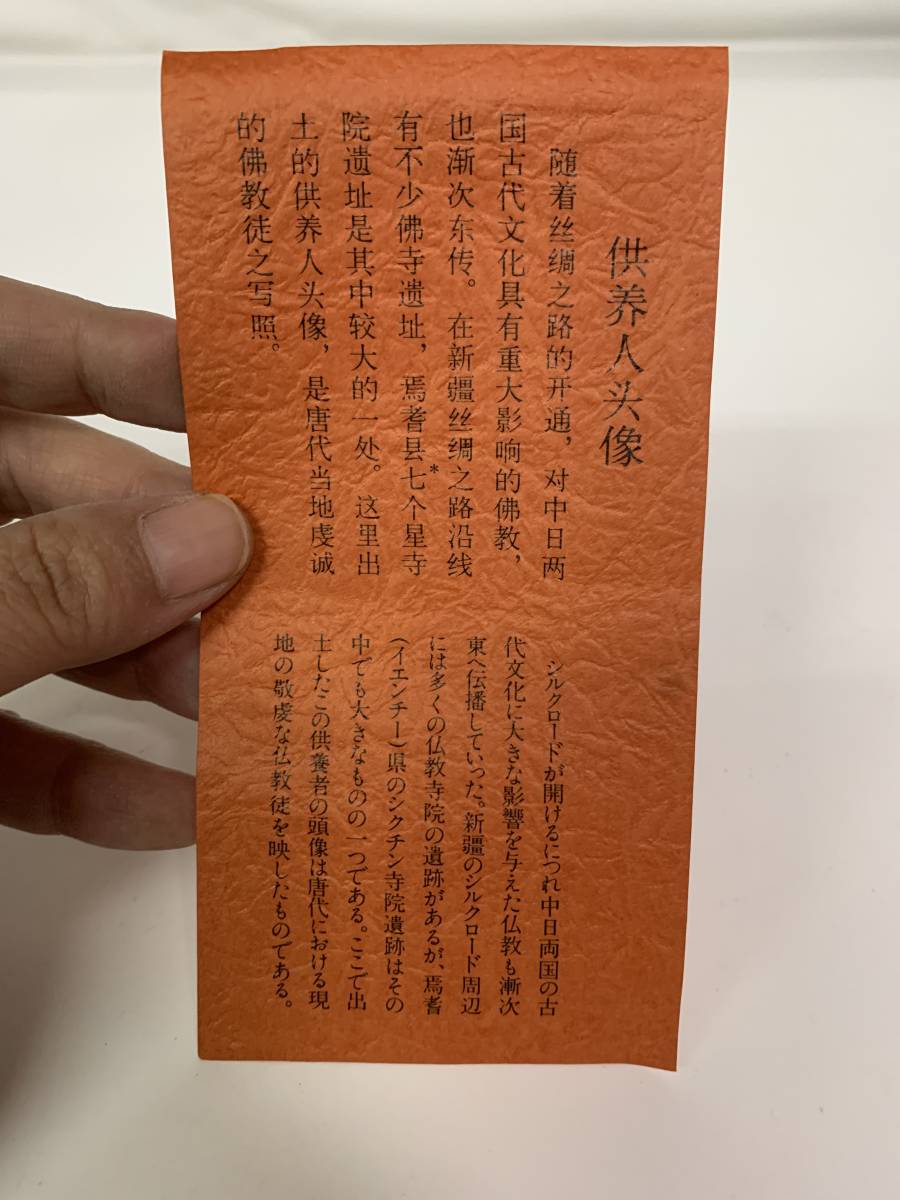 供养人头像
随着丝绸之路的开通，对中日两
国古代文化具有重大影响的佛教，
也渐次东传。在新疆丝绸之路沿线
有不少佛寺遗址，焉耆县七*个星寺
院遗址是其中较大的一处。这里出
土的供养人头像，是唐代当地虔诚
的佛教徒之写照。
シルクロードが開けるにつれ中日両国の古
代文化に大きな影響を与えた仏教も漸次
東へ伝播していった。新疆のシルクロード周辺
には多くの仏教寺院の遺跡があるが、焉耆
(イエンチー)県のシクチン寺院遺跡はその
中でも大きなものの一つである。ここで出
土したこの供養者の頭像は唐代における現
地の敬虔な仏教徒を映したものである。